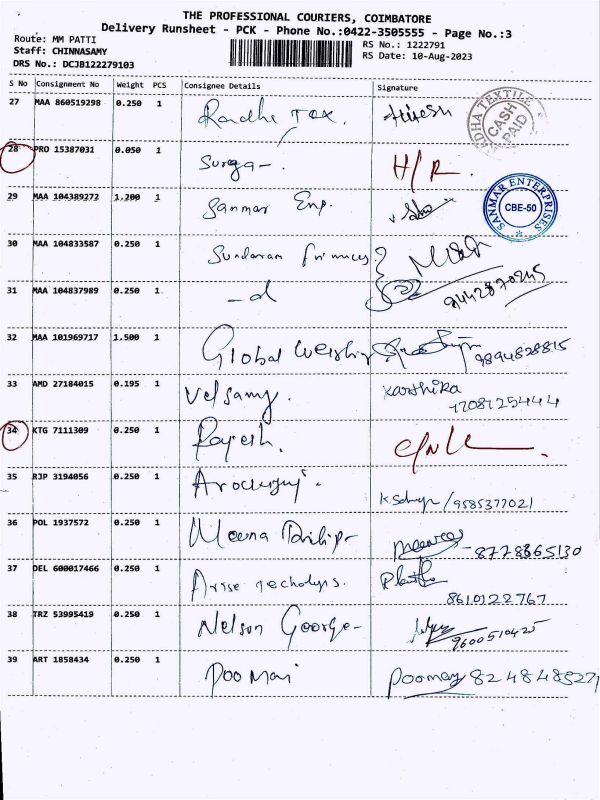 THE PROFESSIONAL COURIERS, COIMBATORE
Delivery Runsheet - PCK - Phone No.:0422-3505555 - Page No.:3
Route: MM PATTI
RS No.: 1222791
Staff: CHINNASAMY
RS Date: 10-Aug-2023
DRS No.: DCJB122279103
S No Consignment No Weight PCS Consignee Details Signature
27 MAA 860519298 0.250 1 Radhe Tex. Hitesh
TEXTILE CASH PAID
28 PRO 15387031 0.050 1 Surya-. H/R.
29 MAA 104389272 1.200 1 Sanmar Enp.
SANMAR ENTERPRISES CBE-50
30 MAA 104833587 0.250 1 Sundaram
31 MAA 104837989 0.250 1 -d 9442870245
32 MAA 101969717 1.500 1 Global 9894828815
33 AMD 27184015 0.195 1 Velsamy. Karthika
34 KTG 7111309 0.250 1 Rajesh.
35 RJP 3194056 0.250 1 /9585377021
36 POL 1937572 0.250 1 Meena Philip- 8778865130
37 DEL 600017466 0.250 1 Arise 8610122767
38 TRZ 53995419 0.250 1 Nelson George- 9600510425
39 ART 1858434 0.250 1 Poomari Poomay